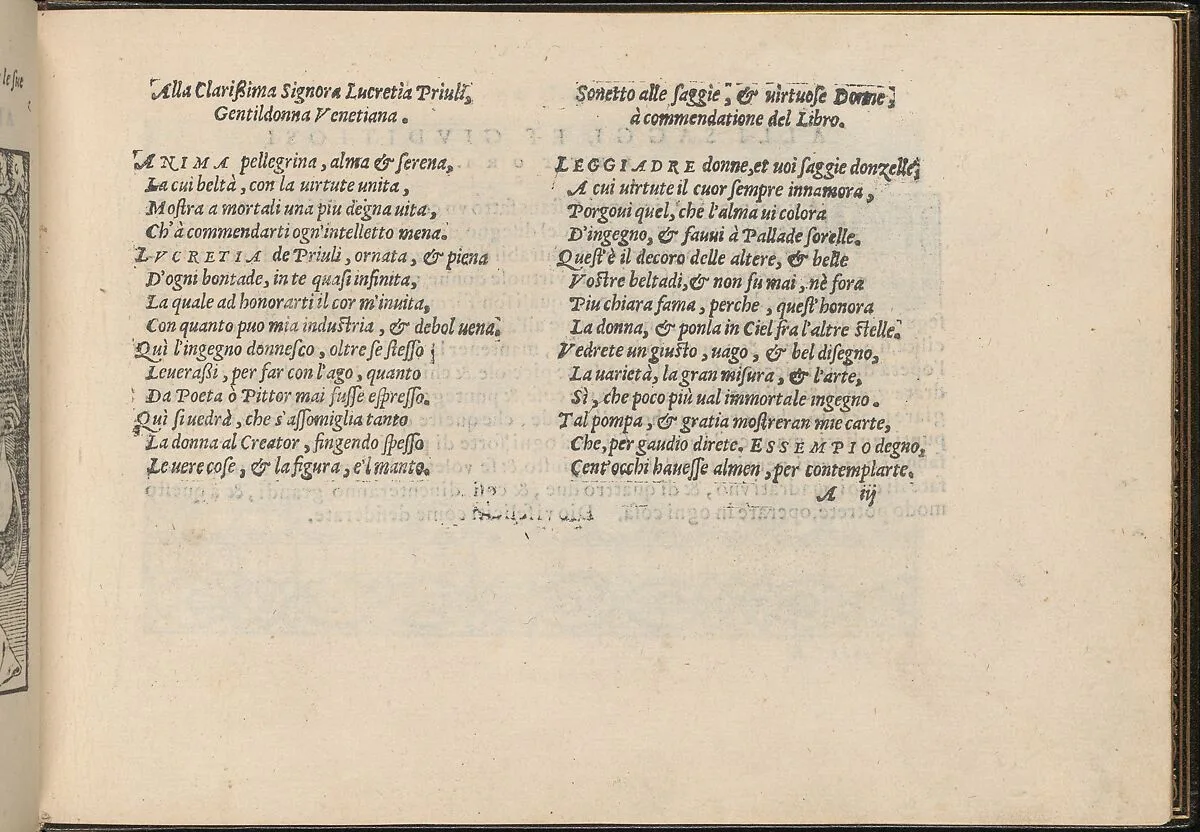 Alla Clarißima Signora Lucretia Priuli,
Gentildonna Venetiana.
ANIMA pellegrina, alma & serena,
La cui beltà, con la uirtute unita,
Mostra a mortali una piu degna uita,
Ch'à commendarti ogn'intelletto mena.
LVCRETIA de Priuli, ornata, & piena
D'ogni bontade, in te quasi infinita,
La quale ad honorarti il cor m'inuita,
Con quanto puo mia industria, & debol uena.
Quì l'ingegno donnesco, oltre se stesso
Leueraßi, per far con l'ago, quanto
Da Poeta ò Pittor mai fusse espresso.
Quì si uedrà, che s'assomiglia tanto
La donna al Creator, fingendo spesso
Le uere cose, & la figura, e'l manto.
Sonetto alle saggie, & uirtuose Donne,
à commendatione del Libro.
LEGGIADRE donne, et uoi saggie donzelle,
A cui uirtute il cuor sempre innamora,
Porgoui quel, che l'alma ui colora
D'ingegno, & fauui à Pallade sorelle.
Quest'è il decoro delle altere, & belle
Vostre beltadi, & non fu mai, nè fora
Piu chiara fama, perche, quest'honora
La donna, & ponla in Ciel fra l'altre stelle.
Vedrete un giusto, uago, & bel disegno,
La uarietà, la gran misura, & l'arte,
Sì, che poco più ual immortale ingegno.
Tal pompa, & gratia mostreran mie carte,
Che, per gaudio direte. ESSEMPIO degno,
Cent'occhi hauesse almen, per contemplarte.
A iij